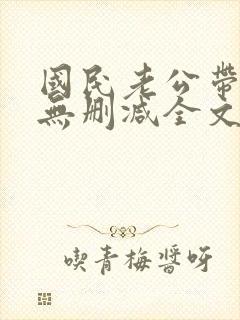 國民老公帶
無刪減全文
喫青梅醬呀